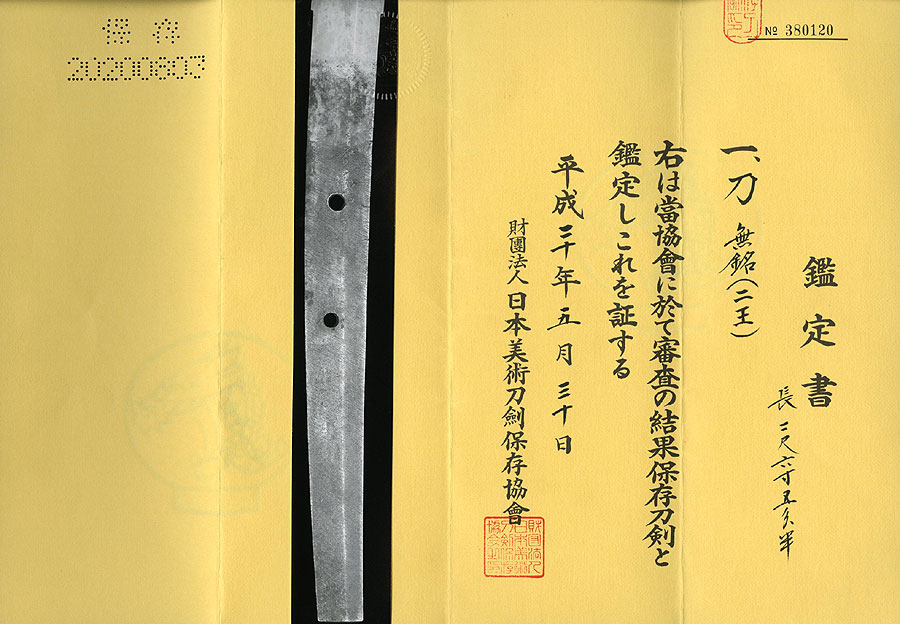 № 380120
鑑定書
長 二尺六寸五分半
一、刀 無銘(二王)
右は當協會に於て審査の結果保存刀剣と
鑑定しこれを証する
平成二十年五月三十日
財團法人 日本美術刀劍保存協會
保存